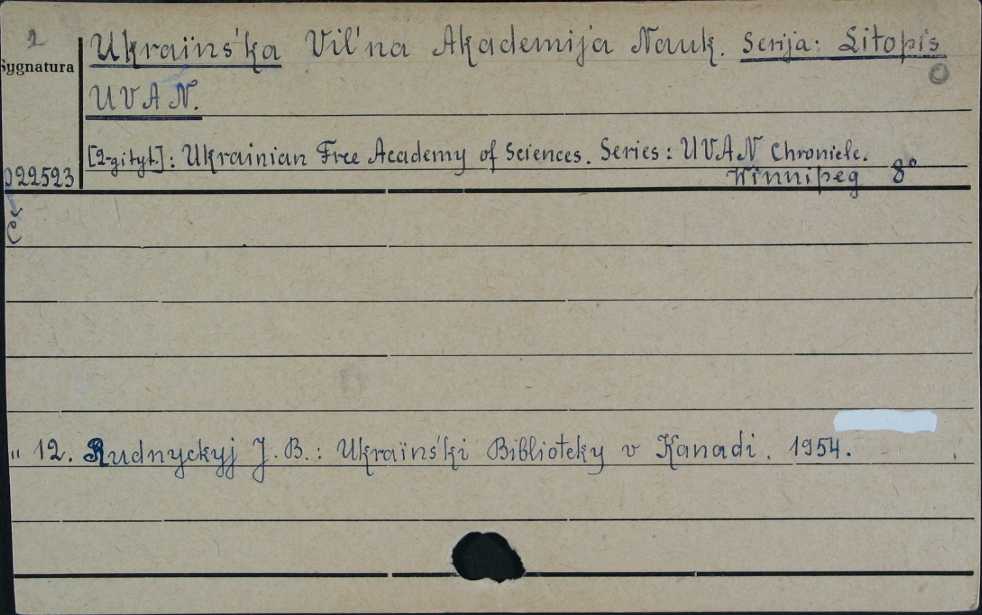 2
Ukraïns'ka Vil'na Akademija Nauk. Serija: Litopis
Sygnatura
UVAN.
[2-gi tyt.]: Ukrainian Free Academy of Sciences. Series: UVAN Chronicle.
022523
Winnipeg 8°
Č
" 12. Rudnyckyj J. B.: Ukraïns'ki Biblioteky v Kanadi. 1954.